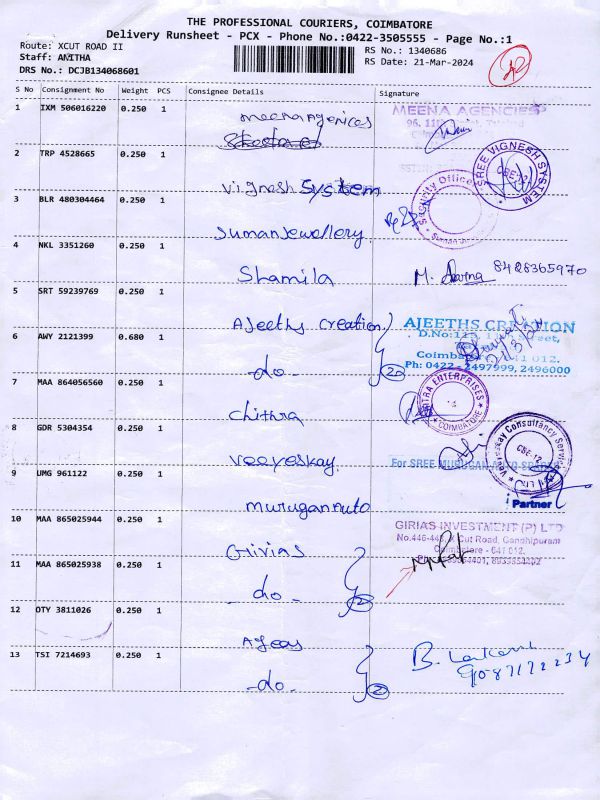 THE PROFESSIONAL COURIERS, COIMBATORE
Delivery Runsheet - PCX - Phone No.:0422-3505555 - Page No.:1
Route: XCUT ROAD II
RS No.: 1340686
Staff: AMITHA
RS Date: 21-Mar-2024
DRS No.: DCJB134068601
S No Consignment No Weight PCS Consignee Details Signature
1 IXM 506016220 0.250 1 meenaagenices
MEENA AGENCIES
2 TRP 4528665 0.250 1 Vignesh System
SREE VIGNESH SYSTEM
CBE-12
Security Officer
3 BLR 480304464 0.250 1 Sumanjewellery
4 NKL 3351260 0.250 1 Shamila
M. 8428365970
5 SRT 59239769 0.250 1 Ajeeths Creation
AJEETHS CREATION
Coimbatore - 641 012.
Ph: 0422 - 2497999, 2496000
21/3/24
6 AWY 2121399 0.680 1 -do- 2
7 MAA 864056560 0.250 1 Chithra
ENTERPRISES
COIMBATORE
8 GDR 5304354 0.250 1 Veeyeskay
Veeyeskay Consultancy Services
CBE-12
9 UMG 961122 0.250 1 muruganauto
For SREE MURUGAN AUTO SPARES
Partner
10 MAA 865025944 0.250 1 Girias
GIRIAS INVESTMENT (P) LTD
Cut Road, Gandhipuram
Coimbatore - 641 012.
11 MAA 865025938 0.250 1 -do- 2
12 OTY 3811026 0.250 1
13 TSI 7214693 0.250 1 -do- 2
B.